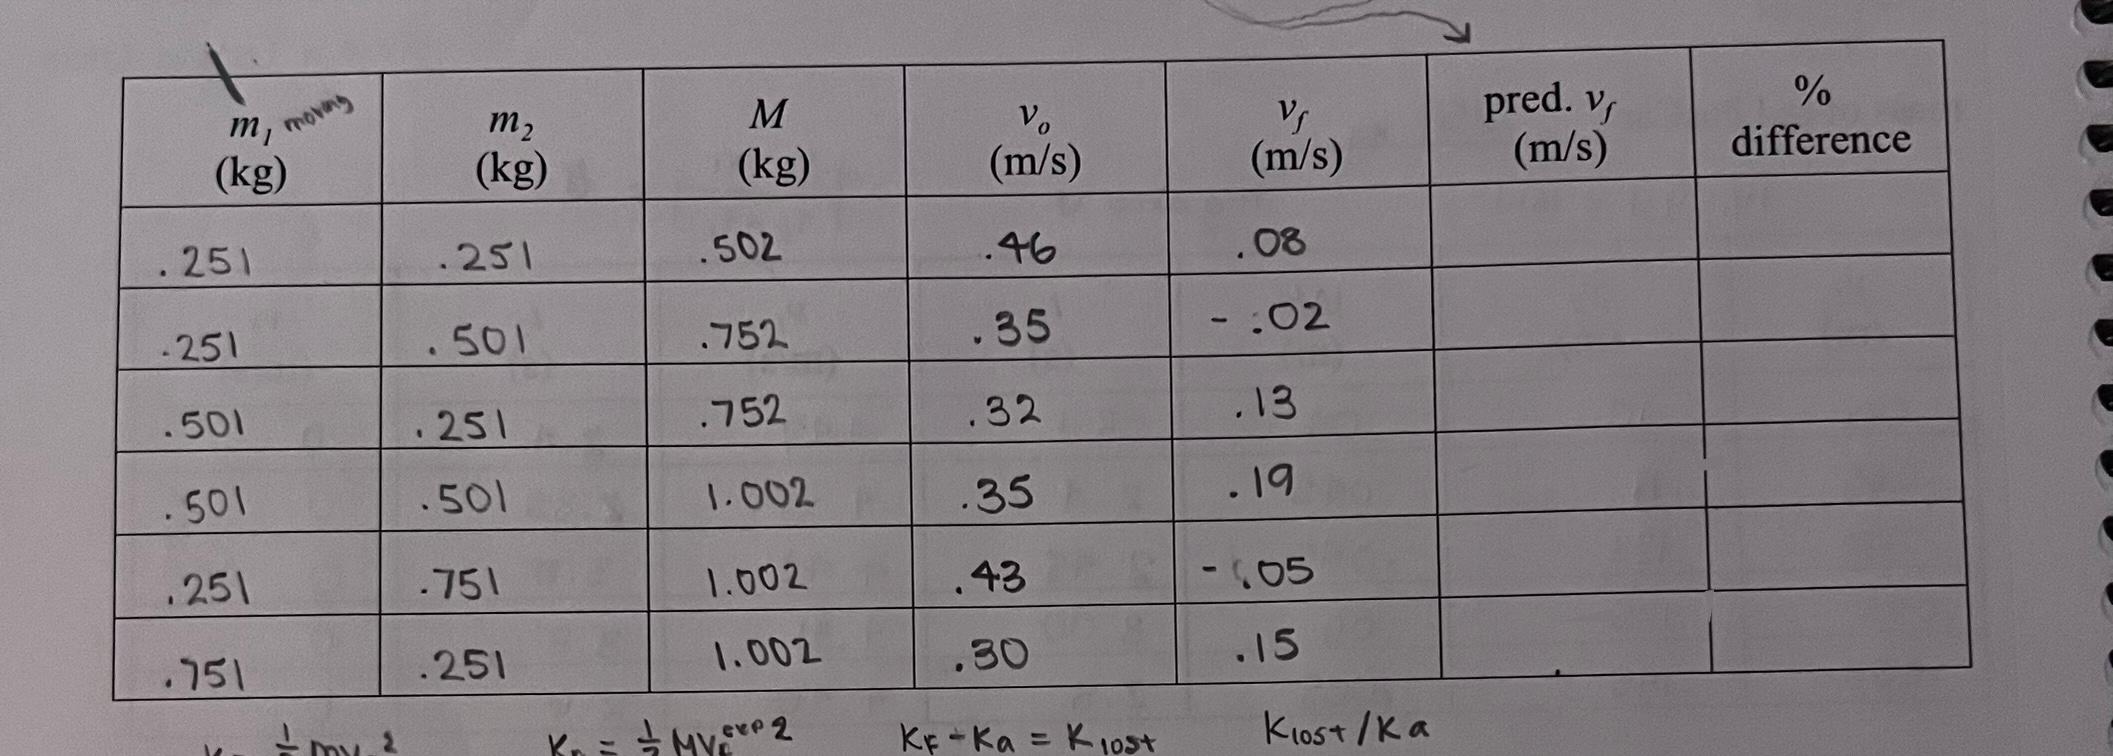 m₁ moving (kg) m₂ (kg) M (kg) vₒ (m/s) v_f (m/s) pred. v_f (m/s) % difference
.251 .251 .502 .46 .08
.251 .501 .752 .35 -.02
.501 .251 .752 .32 .13
.501 .501 1.002 .35 .19
.251 .751 1.002 .43 -.05
.751 .251 1.002 .30 .15
K_F - Ka = K lost K lost / Ka